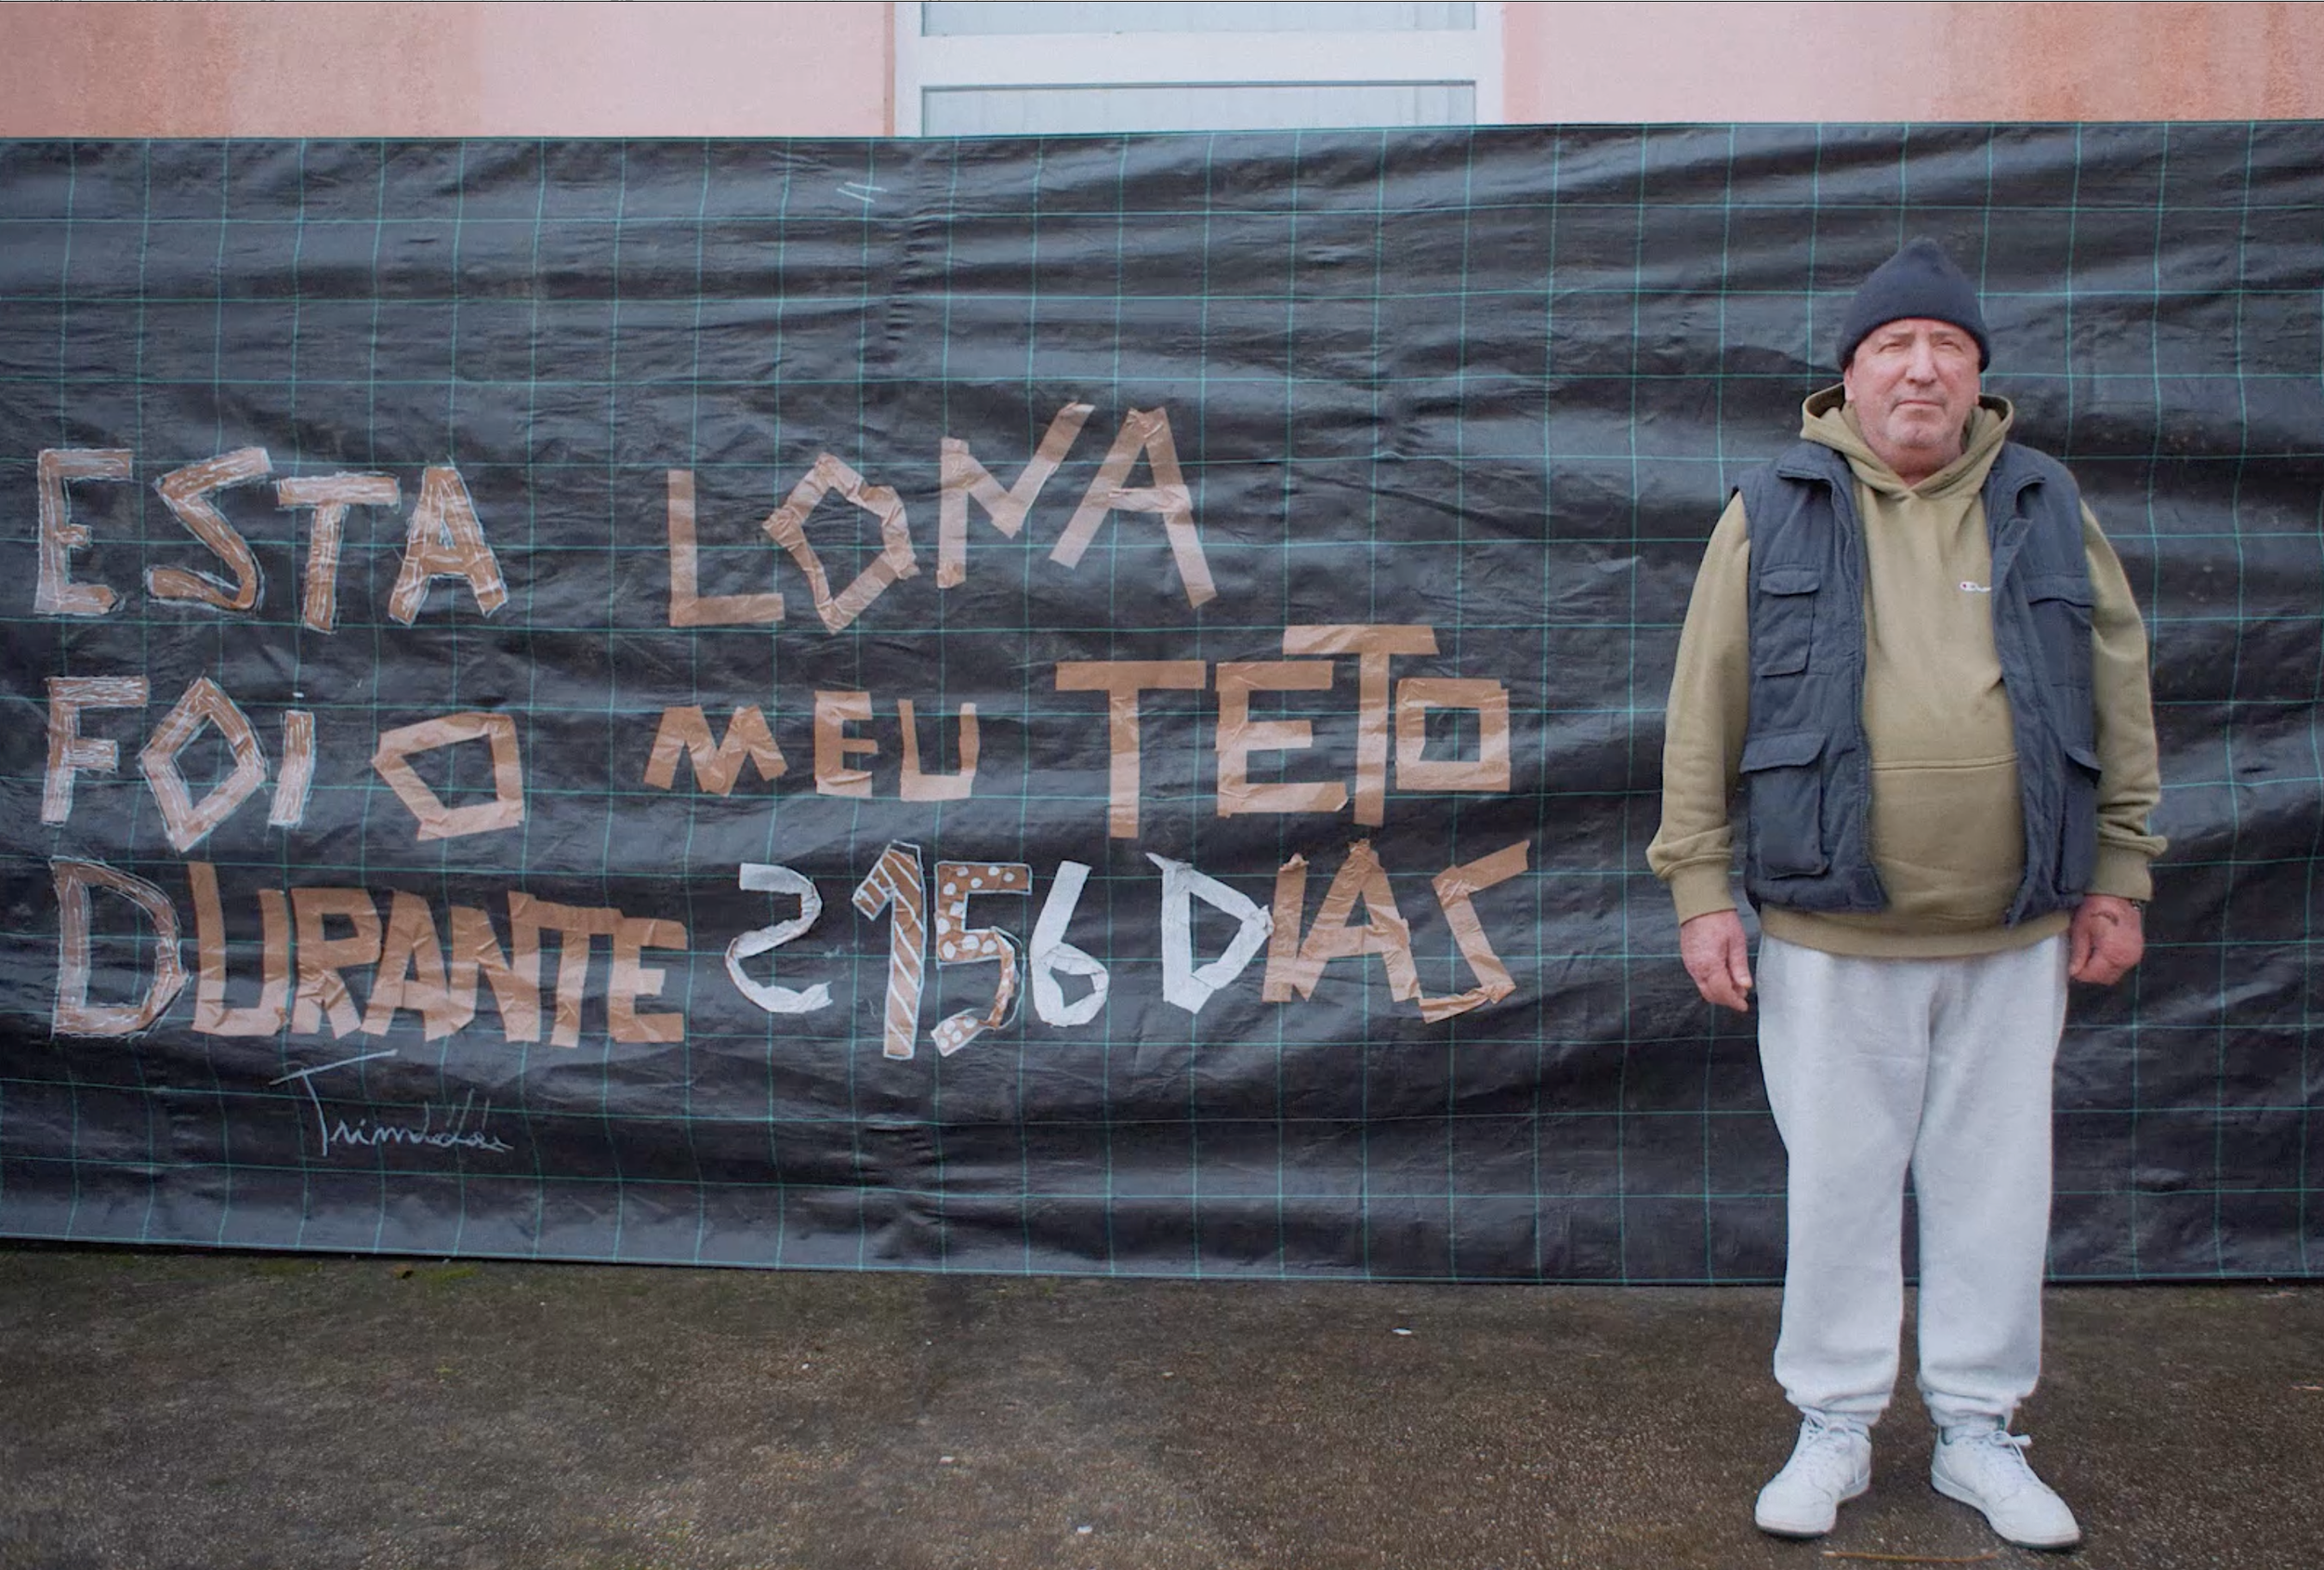 ESTA LONA
FOI O MEU TETO
DURANTE 2156 DIAS